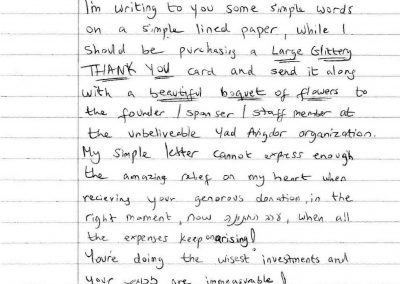 I'm writing to you some simple words
on a simple lined paper, while I
should be purchasing a Large Glittery
THANK YOU card and send it along
with a beautiful boquet of flowers to
the founder / sponser / staff member at
the unbelieveable Yad Avigdor organization.
My simple letter cannot express enough
the amazing relief on my heart when
recieving your generous donation, in the
right moment, now , when all
the expenses keep on arising!
You're doing the wisest investments and
your are immeasurable!